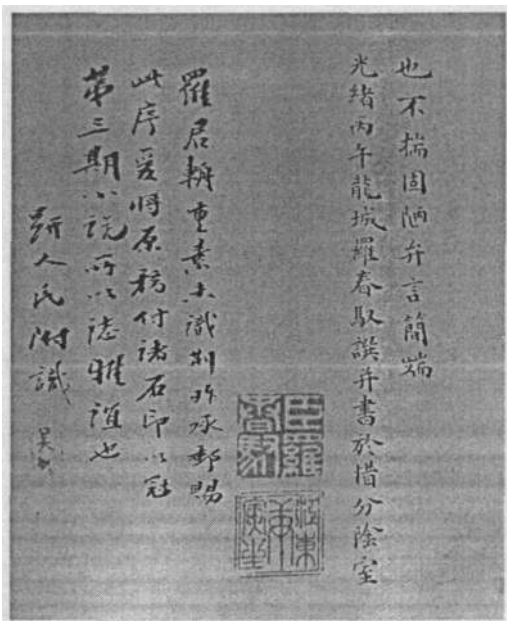 也不揣固陋弁言簡端
光緒丙午龍城羅春馭譔并書於惜分陰室
臣羅春馭
江東
羅君輈重素未識荊昨承郵賜
此序爰將原稿付諸石印以冠
第三期小説所以誌雅誼也
趼人氏附識